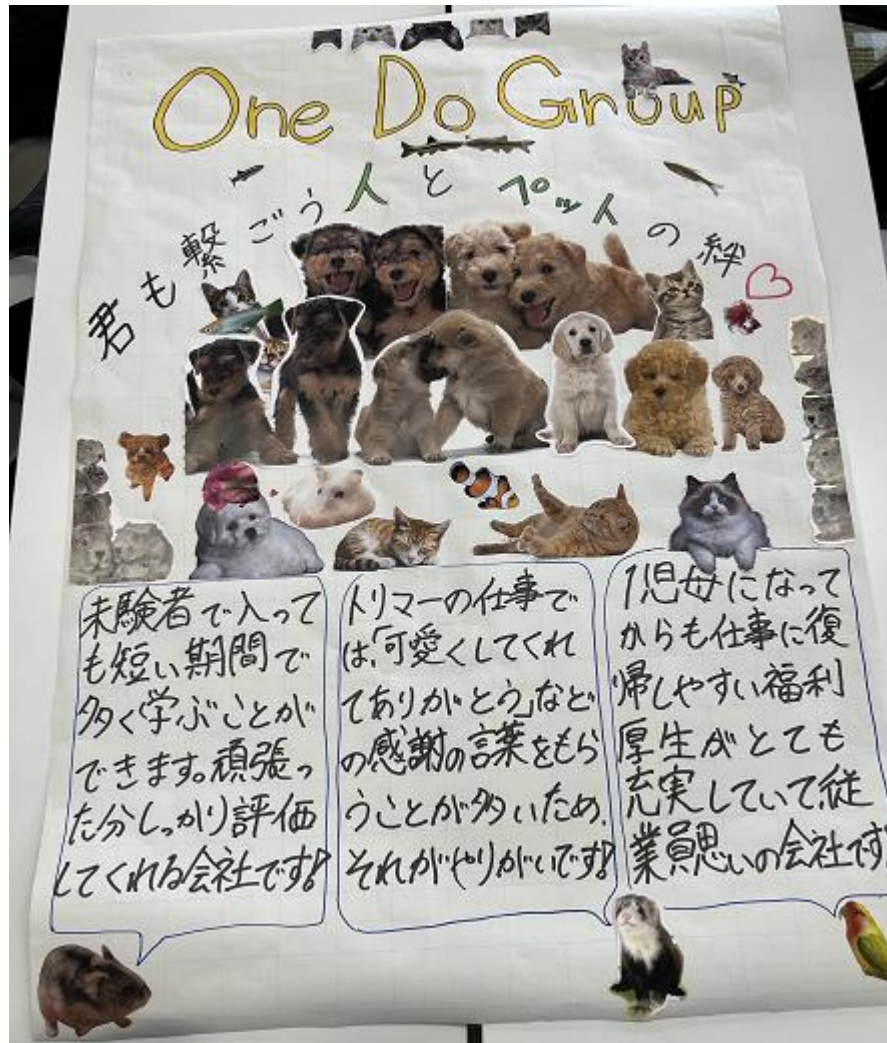 One Do Group
君も繋ごう人とペットの絆
未験者で入って
も短い期間で
多く学ぶことが
できます。頑張っ
た分しっかり評価
してくれる会社です!
トリマーの仕事で
は、「可愛くしてくれ
てありがとう」など
の感謝の言葉をもら
うことが多いため、
それがやりがいです!
1児母になって
からも仕事に復
帰しやすい福利
厚生がとても
充実していて、従
業員思いの会社です